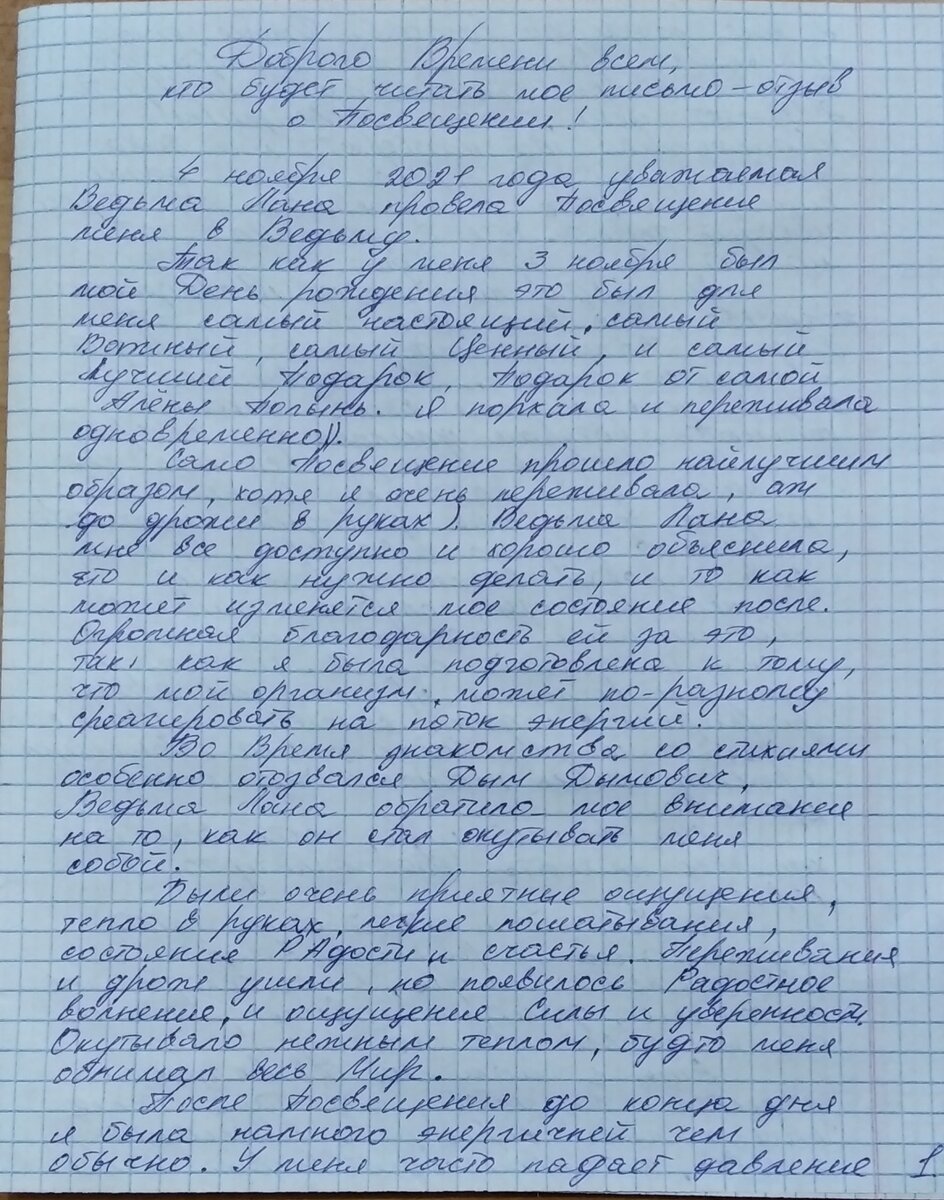 Доброго Времени всем,
кто будет читать мое письмо-отзыв
о Посвещении!
4 ноября 2021 года уважаемая
Ведьма Лана провела Посвящение
меня в Ведьму.
Так как у меня 3 ноября был
мой День рождения это был для
меня самый настоящий, самый
Важный, самый Ценный, и самый
Лучший Подарок, Подарок от самой
Алёны Полынь. Я порхала и переживала
одновременно)).
Само Посвящение прошло наилучшим
образом, хотя я очень переживала, аж
до дрожи в руках). Ведьма Лана
мне все доступно и хорошо объяснила,
что и как нужно делать, и то как
может изменятся мое состояние после.
Огромная благодарность ей за это,
так как я была подготовлена к тому,
что мой организм может по-разному
среагировать на поток энергий.
Во Время знакомства со стихиями
особенно отозвался Дым Дымович,
Ведьма Лана обратила мое внимание
на то, как он стал окутывать меня
собой.
Были очень приятные ощущения,
тепло в руках, легкие пошатывания,
состояния РАдости и счастья. Переживания
и дрожь ушли, но появилось Радостное
волнение, и ощущение Силы и уверенности.
Окутывало нежным теплом, будто меня
обнимал весь Мир.
После Посвящения до конца дня
я была намного энергичней чем
обычно. У меня часто падает давление 1